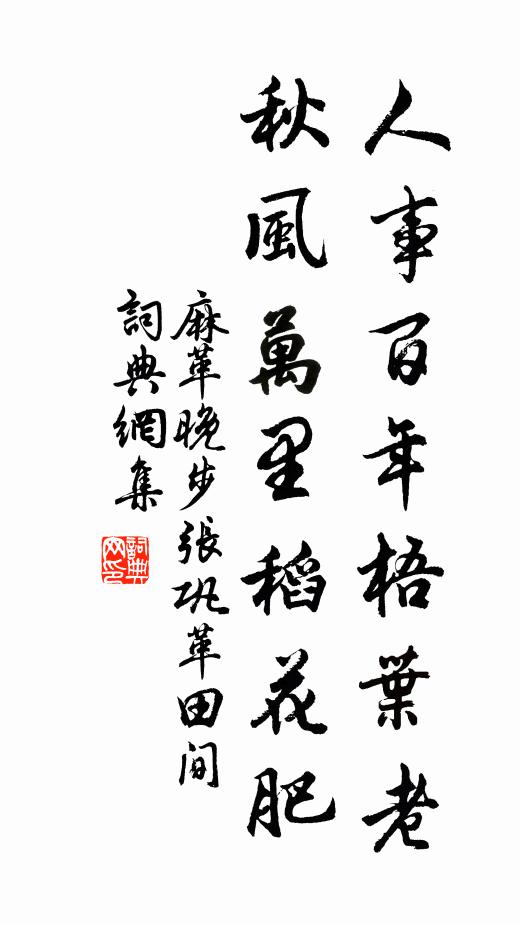 人事百年梧葉老
秋風萬里稻花肥
麻革晚步張巩革田間
詞典網集
詞典網印